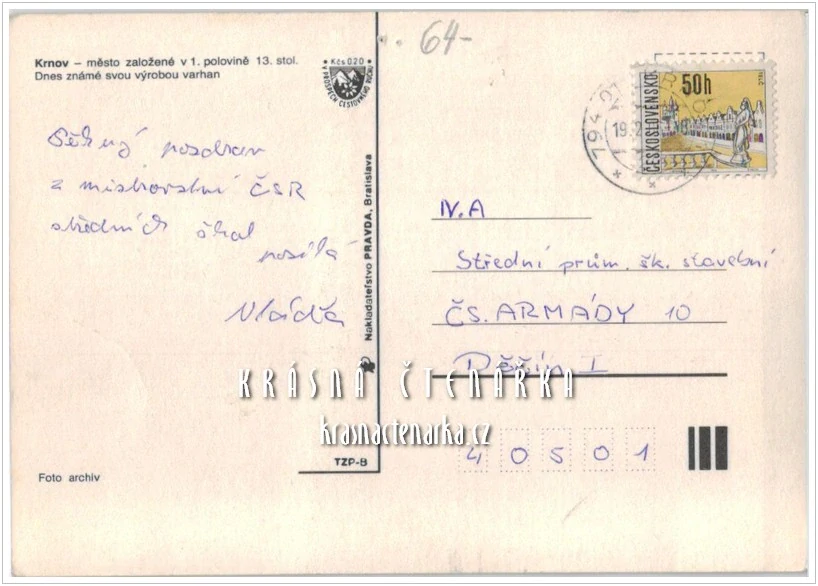 64-
Krnov – město založené v 1. polovině 13. stol.
Dnes známé svou výrobou varhan
Kčs 0.20
V PROSPĚCH CESTOVNÉHO RUCHU
ČESKOSLOVENSKO
50h
Pěkný pozdrav
z mistrovství ČSR
středních škol
posílá
Vláďa
Nakladatelstvo PRAVDA, Bratislava
IV.A
Střední prům. šk. stavební
ČS. ARMÁDY 10
Děčín I
KRÁSNÁ ČTENÁŘKA
krasnactenarka.cz
40501
TZP-B
Foto archiv